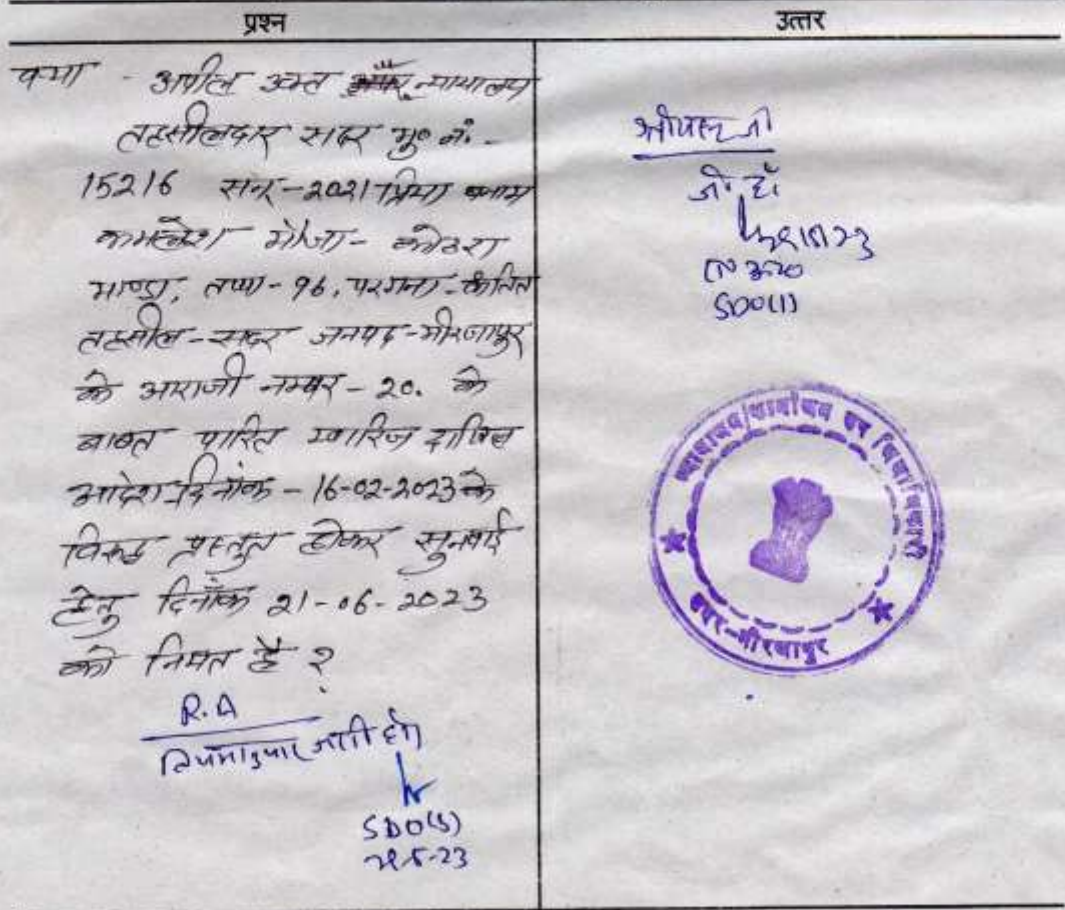 प्रश्न
उत्तर
क्या - अपील उक्त न्यायालय
तहसीलदार सदर मु० नं. -
15216 सन् - 2021 प्रेमा बनाम
कमलेश मौजा - कोठरा
भाण्डा, तप्पा - 96, परगना - कन्तित
तहसील - सदर जनपद - मीरजापुर
के आराजी नम्बर - 20. के
बाबत पारित खारिज दाखिल
आदेश दिनांक - 16-02-2023 के
विरुद्ध प्रस्तुत होकर सुनवाई
हेतु दिनाँक 21-06-2023
को नियत है ?
R.A
नियमानुसार जारी हो
SDO(S)
-5-23
जी हाँ
SDO(1)
न्यायालय/कार्यालय उप जिलाधिकारी
सदर-मीरजापुर